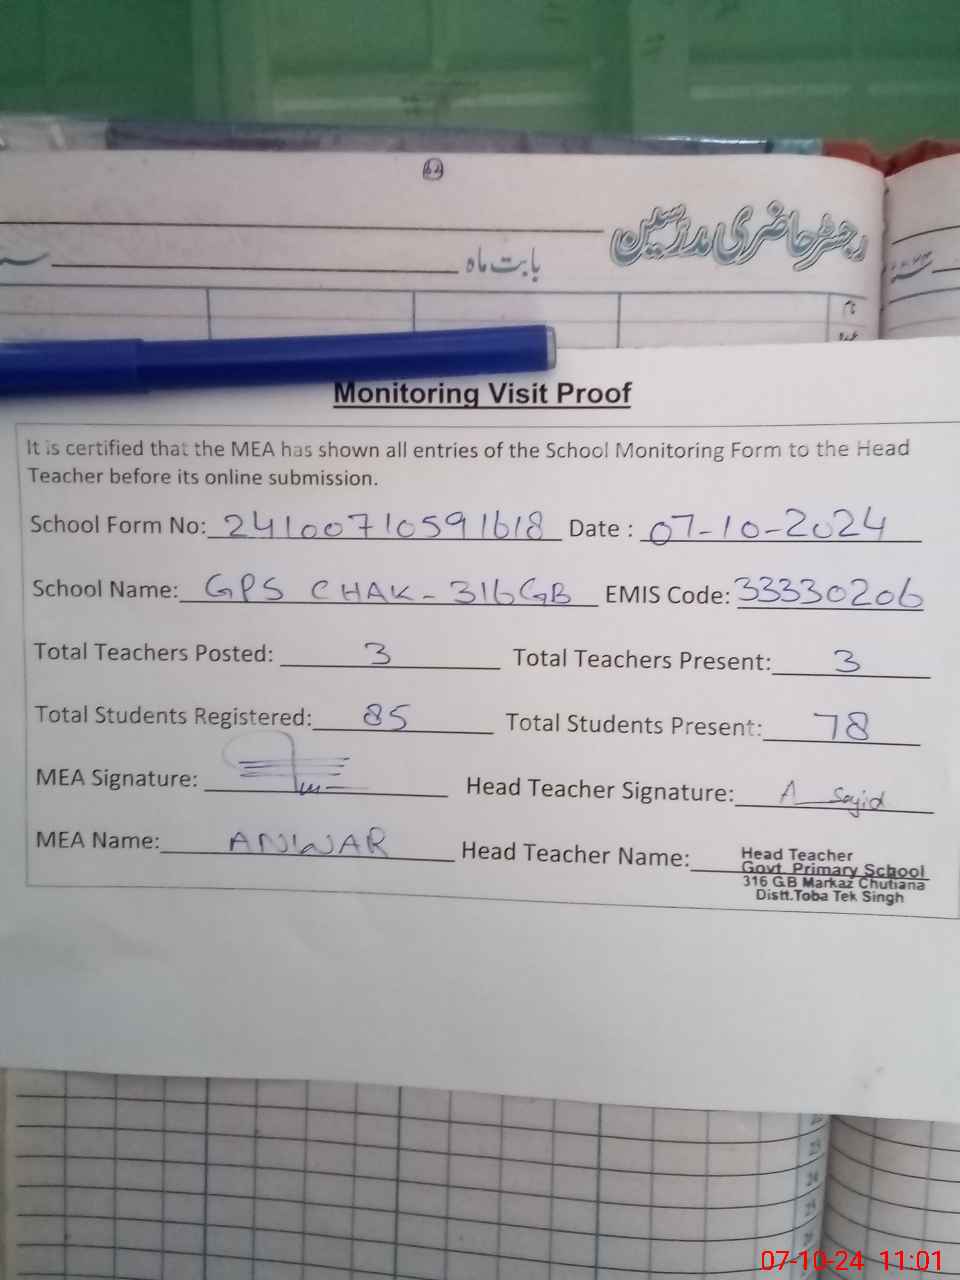 رجسٹر حاضری مدرسین
بابت ماہ
نام
Monitoring Visit Proof
It is certified that the MEA has shown all entries of the School Monitoring Form to the Head
Teacher before its online submission.
School Form No: 24100710591618 Date : 07-10-2024
School Name: GPS CHAK-316GB EMIS Code: 33330206
Total Teachers Posted: 3 Total Teachers Present: 3
Total Students Registered: 85 Total Students Present: 78
MEA Signature: Head Teacher Signature: A Sajid
MEA Name: ANWAR Head Teacher Name:
Head Teacher
Govt. Primary School
316 GB Markaz Chutiana
Distt.Toba Tek Singh
23
24
25
07-10-24 11:01